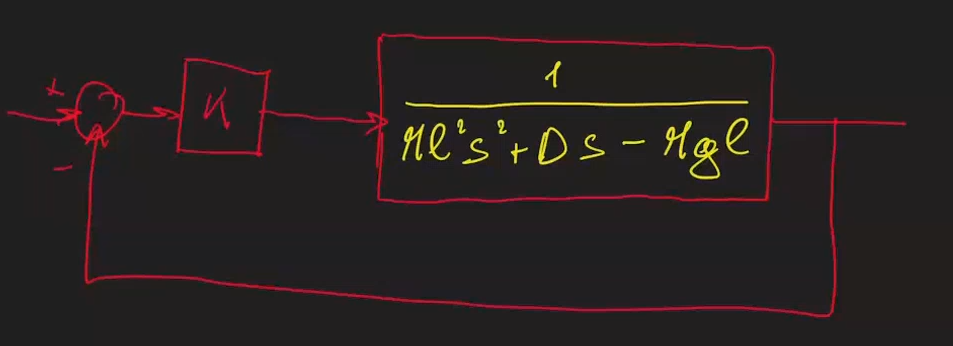 +
K
1
Ml²s² + Ds − Mgl
−